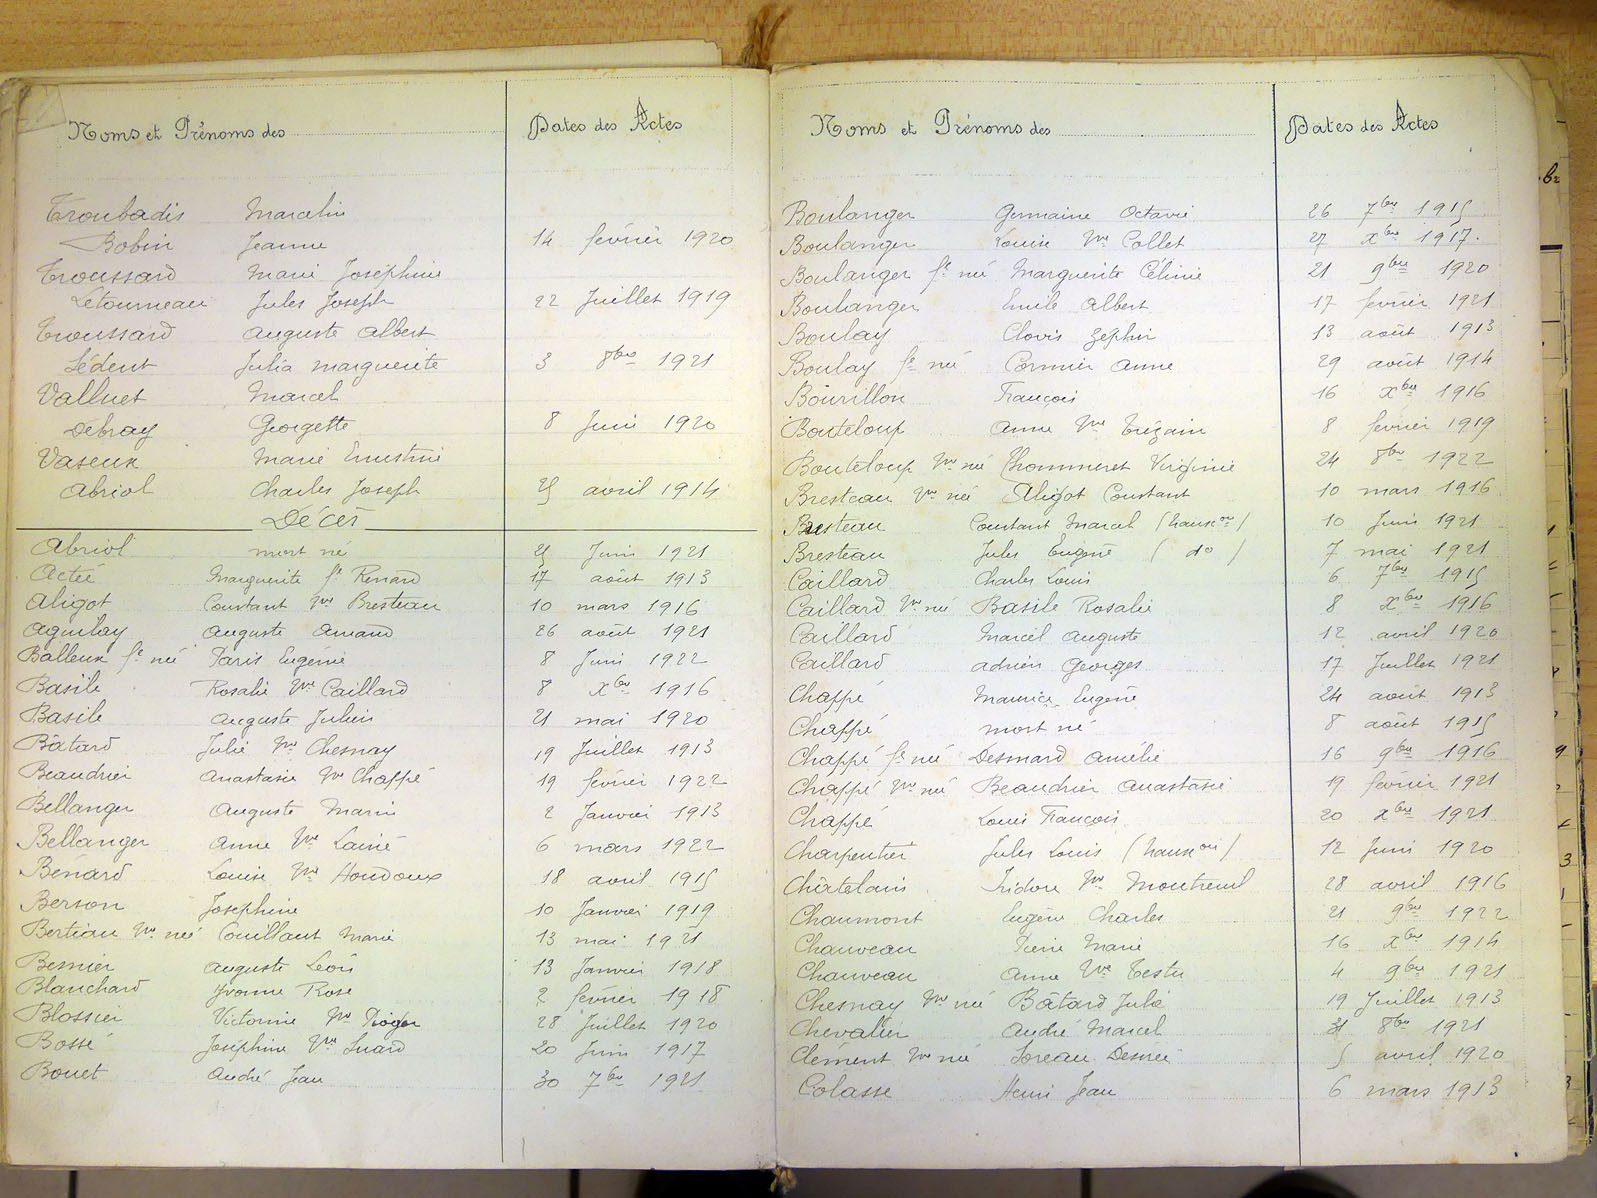 Noms et Prénoms des
Dates des Actes
Troubadis Marcelin
Bobin Jeanne 14 février 1920
Troussard Marie Joséphine
Létourneau Jules Joseph 22 Juillet 1919
Troussard Auguste Albert
Lédent Julia Marguerite 3 8bre 1921
Valluet Marcel
Debray Georgette 8 Juin 1920
Vaseux Marie Ernestine
Abriol Charles Joseph 25 avril 1914
Décès
Abriol mort né 25 Juin 1921
Actée Marguerite fe Renard 17 août 1913
Aligot Constant Vve Bresteau 10 mars 1916
Aguilay Auguste Amand 26 août 1921
Balleux fe née Paris Eugénie 8 Juin 1922
Basile Rosalie Vve Caillard 8 xbre 1916
Basile Auguste Julien 21 mai 1920
Bâtard Julie Vve Chesnay 19 Juillet 1913
Beaudrier Anastasie Vve Chappé 19 février 1922
Bellanger Auguste Marin 2 Janvier 1913
Bellanger Anne Vve Lainé 6 mars 1922
Bénard Louise Vve Houdoux 18 avril 1915
Berson Joséphine 10 Janvier 1919
Bertiau Vve née Couillaut Marie 13 mai 1921
Besnier Auguste Léon 13 Janvier 1918
Blanchard Yvonne Rose 2 février 1918
Blossier Victorine Vve 28 Juillet 1920
Bossé Joséphine Vve Suard 20 Juin 1917
Bouet André Jean 30 7bre 1921
Noms et Prénoms des
Dates des Actes
Boulanger Germaine Octavie 26 7bre 1915
Boulanger Louise Vve Collet 27 xbre 1917.
Boulanger fe née Marguerite Céline 21 9bre 1920
Boulanger Emile Albert 17 février 1921
Boulay Clovis Zéphir 13 août 1913
Boulay fe née Cormier Anne 29 août 1914
Bourillon François 16 xbre 1916
Bouteloup Anne Vve Trégain 8 février 1919
Bouteloup Vve née Thommeret Virginie 24 8bre 1922
Bresteau Vve née Aligot Constant 10 mars 1916
Bresteau Constant Marcel (transon) 10 Juin 1921
Bresteau Jules Eugène ( do ) 7 mai 1921
Caillard Charles Louis 6 7bre 1915
Caillard Vve née Basile Rosalie 8 xbre 1916
Caillard Marcel Auguste 12 avril 1920
Caillard Adrien Georges 17 Juillet 1921
Chappé Maurice Eugène 24 août 1913
Chappé mort né 8 août 1915
Chappé fe née Desmard Amélie 16 9bre 1916
Chappé Vve née Beaudrier Anastasie 19 février 1921
Chappé Louis François 20 xbre 1921
Charpentier Jules Louis (transon) 12 Juin 1920
Châtelais Isidore Vve Montreuil 28 avril 1916
Chaumont Eugène Charles 21 9bre 1922
Chauveau Pierre Marie 16 xbre 1914
Chauveau Anne Vve Testu 4 9bre 1921
Chesnay Vve née Bâtard Julie 19 Juillet 1913
Chevalier André Marcel 31 8bre 1921
Clément Vve née Loreau Desirée 5 avril 1920
Colasse Henri Jean 6 mars 1913